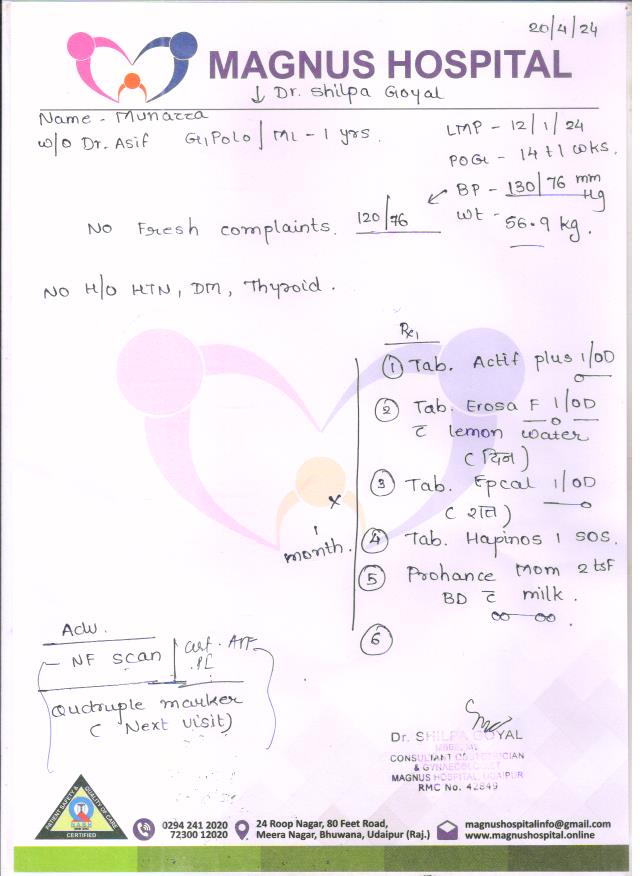 20/4/24
MAGNUS HOSPITAL
↓ Dr. Shilpa Goyal
Name - Munazza
w/o Dr. Asif G1P0L0 | ML - 1 yrs.
LMP - 12/1/24
POG - 14+1 wks.
BP - 130/76 mm Hg
120/76
wt - 56.9 kg.
No Fresh complaints.
No H/o HTN, DM, Thyroid.
Rx,
① Tab. Actif plus 1/OD
② Tab. Erosa F 1/OD
c̄ lemon water
(दिन)
③ Tab. Epcal 1/OD
(रात)
④ Tab. Hapinos 1 SOS.
⑤ Prohance Mom 2 tsf
BD c̄ milk.
⑥
x
1
month.
Adv.
- NF scan
Quadruple marker
(Next visit)
Dr. SHILPA GOYAL
CONSULTANT OBSTETRICIAN
& GYNAECOLOGIST
MAGNUS HOSPITAL, UDAIPUR
RMC No. 42849
PATIENT SAFETY & QUALITY OF CARE
CERTIFIED
0294 241 2020
72300 12020
24 Roop Nagar, 80 Feet Road,
Meera Nagar, Bhuwana, Udaipur (Raj.)
magnushospitalinfo@gmail.com
www.magnushospital.online